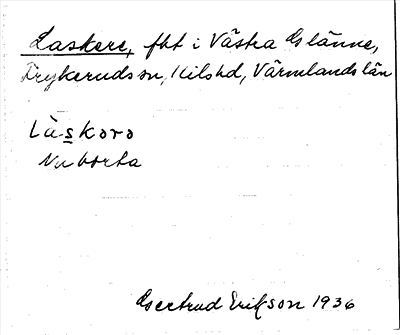 Laskere, fbt i Västra Glänne,
Frykeruds sn, Kils hd, Värmlands län
Làskoro
Nu borta
Gertrud Erikson 1936